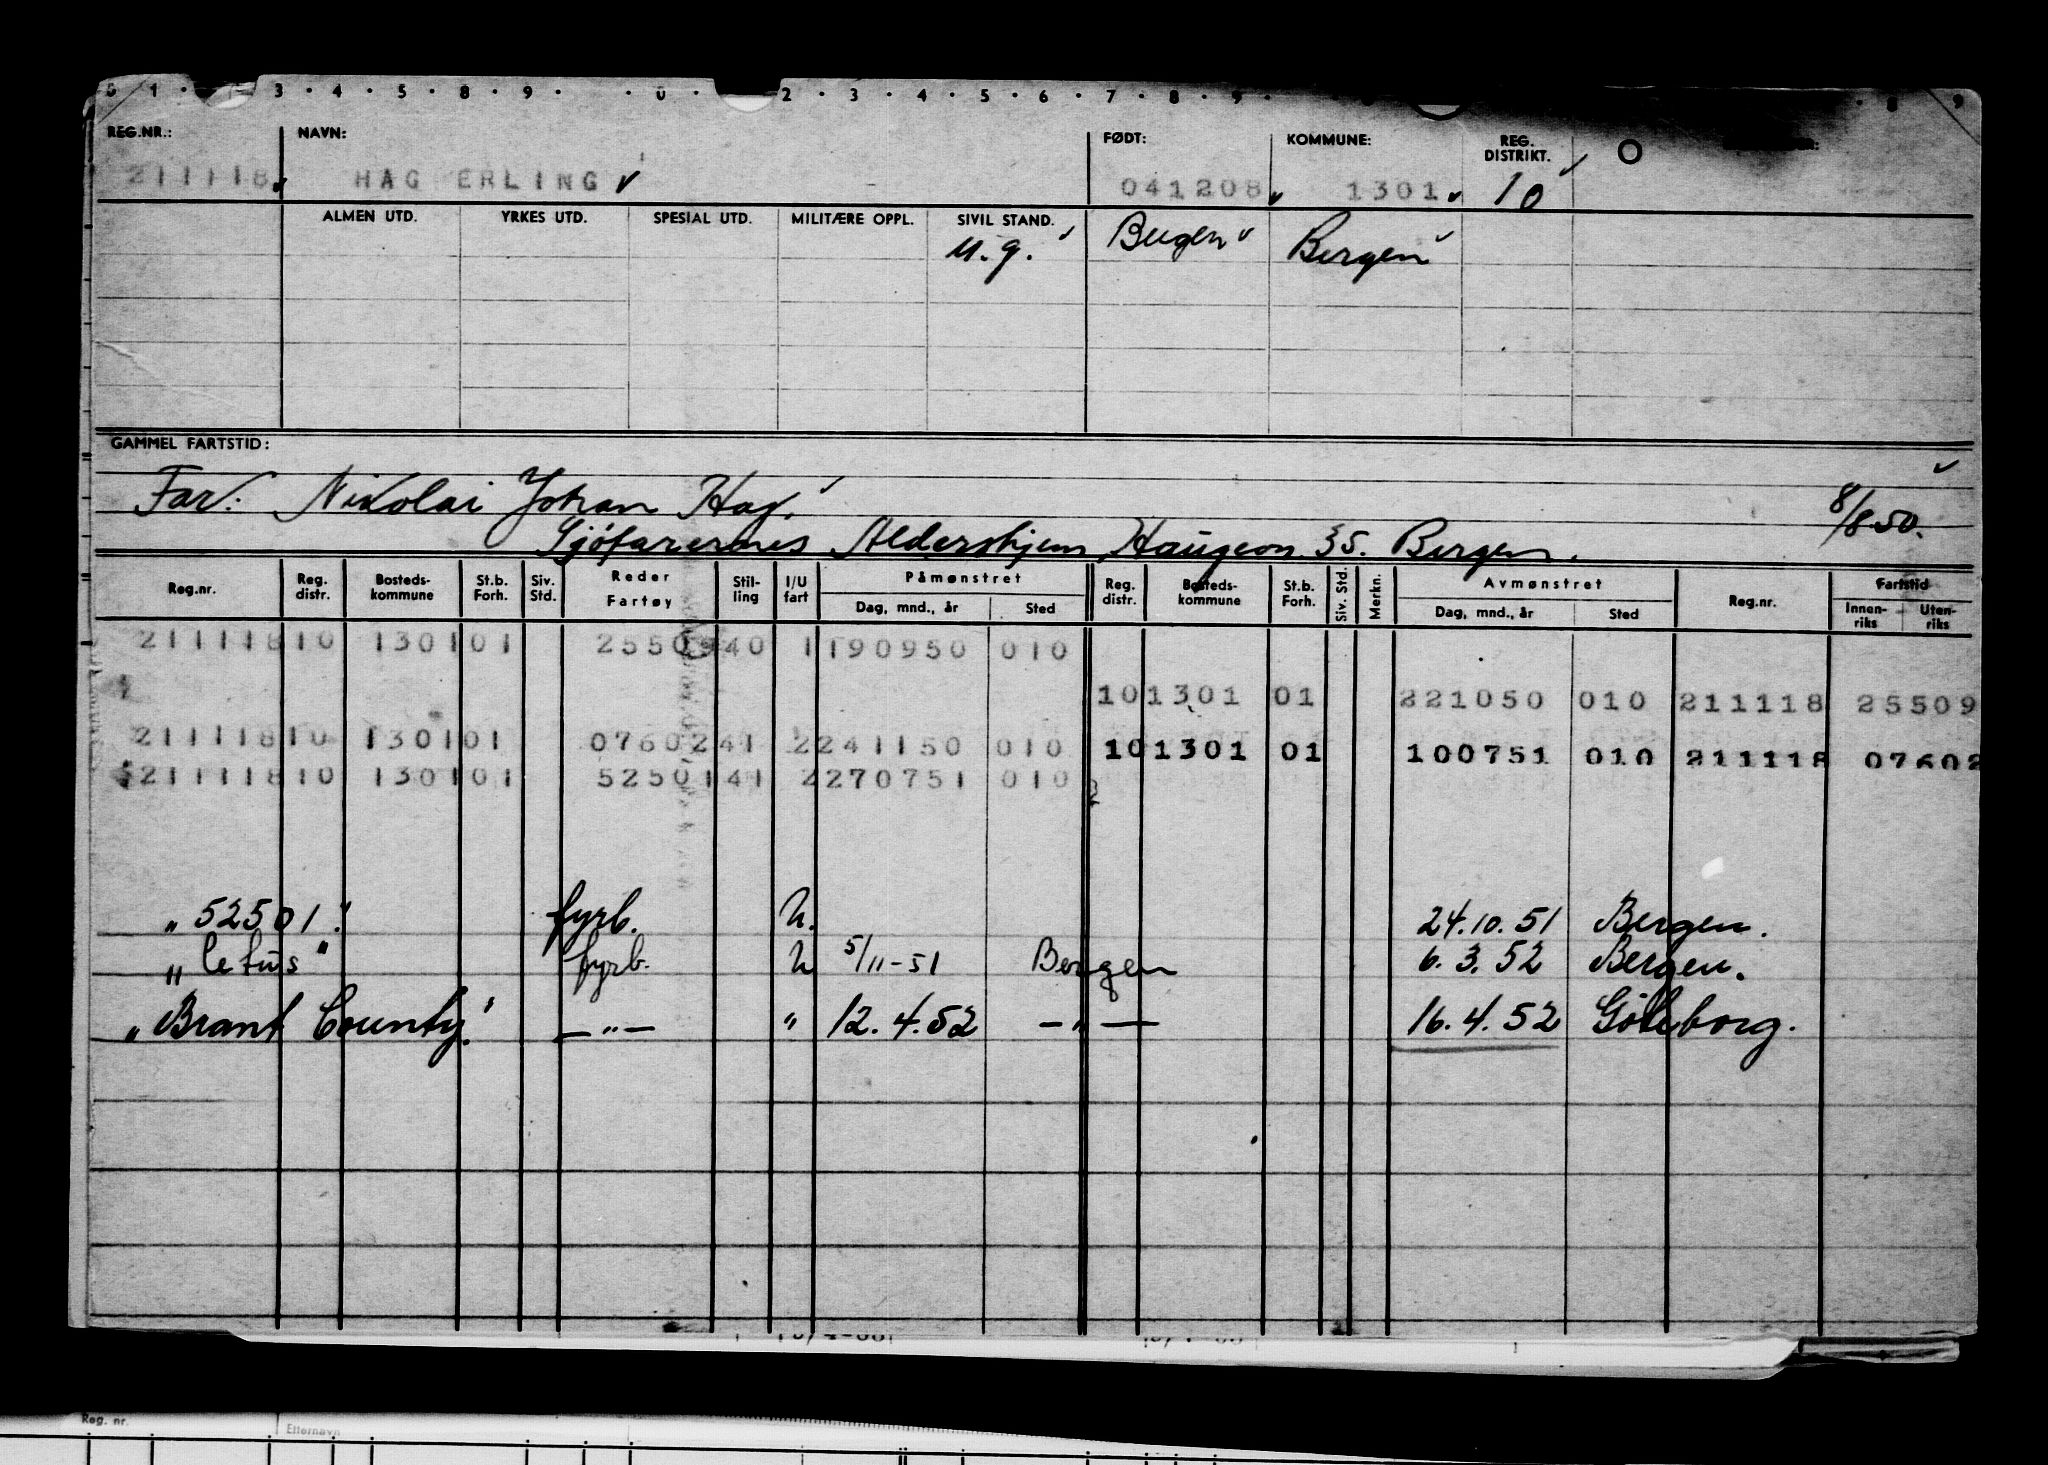 0 1 · 3 · 4 · 5 · 8 · 9 · · 0 · 2 · 3 · 4 · 5 · 6 · 7 · 8 · 9 · · 8 9
REG.NR.: NAVN: FØDT: KOMMUNE: REG. DISTRIKT.
211118 HAG ERLING 041208 1301 10
ALMEN UTD. YRKES UTD. SPESIAL UTD. MILITÆRE OPPL. SIVIL STAND.
u.g. Bergen Bergen
GAMMEL FARTSTID:
Far: Nikolai Johan Hag.
8/8 50.
Sjøfarernes Aldershjem, 35. Bergen.
Reg.nr. Reg. distr. Bosteds- kommune St.b. Forh. Siv. Std. Reder Fartøy Stil- ling I/U fart Påmønstret Reg. distr. Bosteds- kommune St.b. Forh. Siv. Std. Merkn. Avmønstret Reg.nr. Fartstid
Dag, mnd., år Sted Dag, mnd., år Sted Innen- riks Uten- riks
211118 10 1301 01 25509 40 1 190950 010
10 1301 01 221050 010 211118 25509
211118 10 1301 01 07602 41 2 241150 010 10 1301 01 100751 010 211118 07602
211118 10 1301 01 52501 41 2 270751 010
" 52501 " fyrb. U. 24.10.51 Bergen.
" Cetus " fyrb. U 5/11-51 Bergen 6.3.52 Bergen.
" Brant County " — " — " 12.4.52 — " — 16.4.52 Göteborg.
Reg. nr. Etternavn